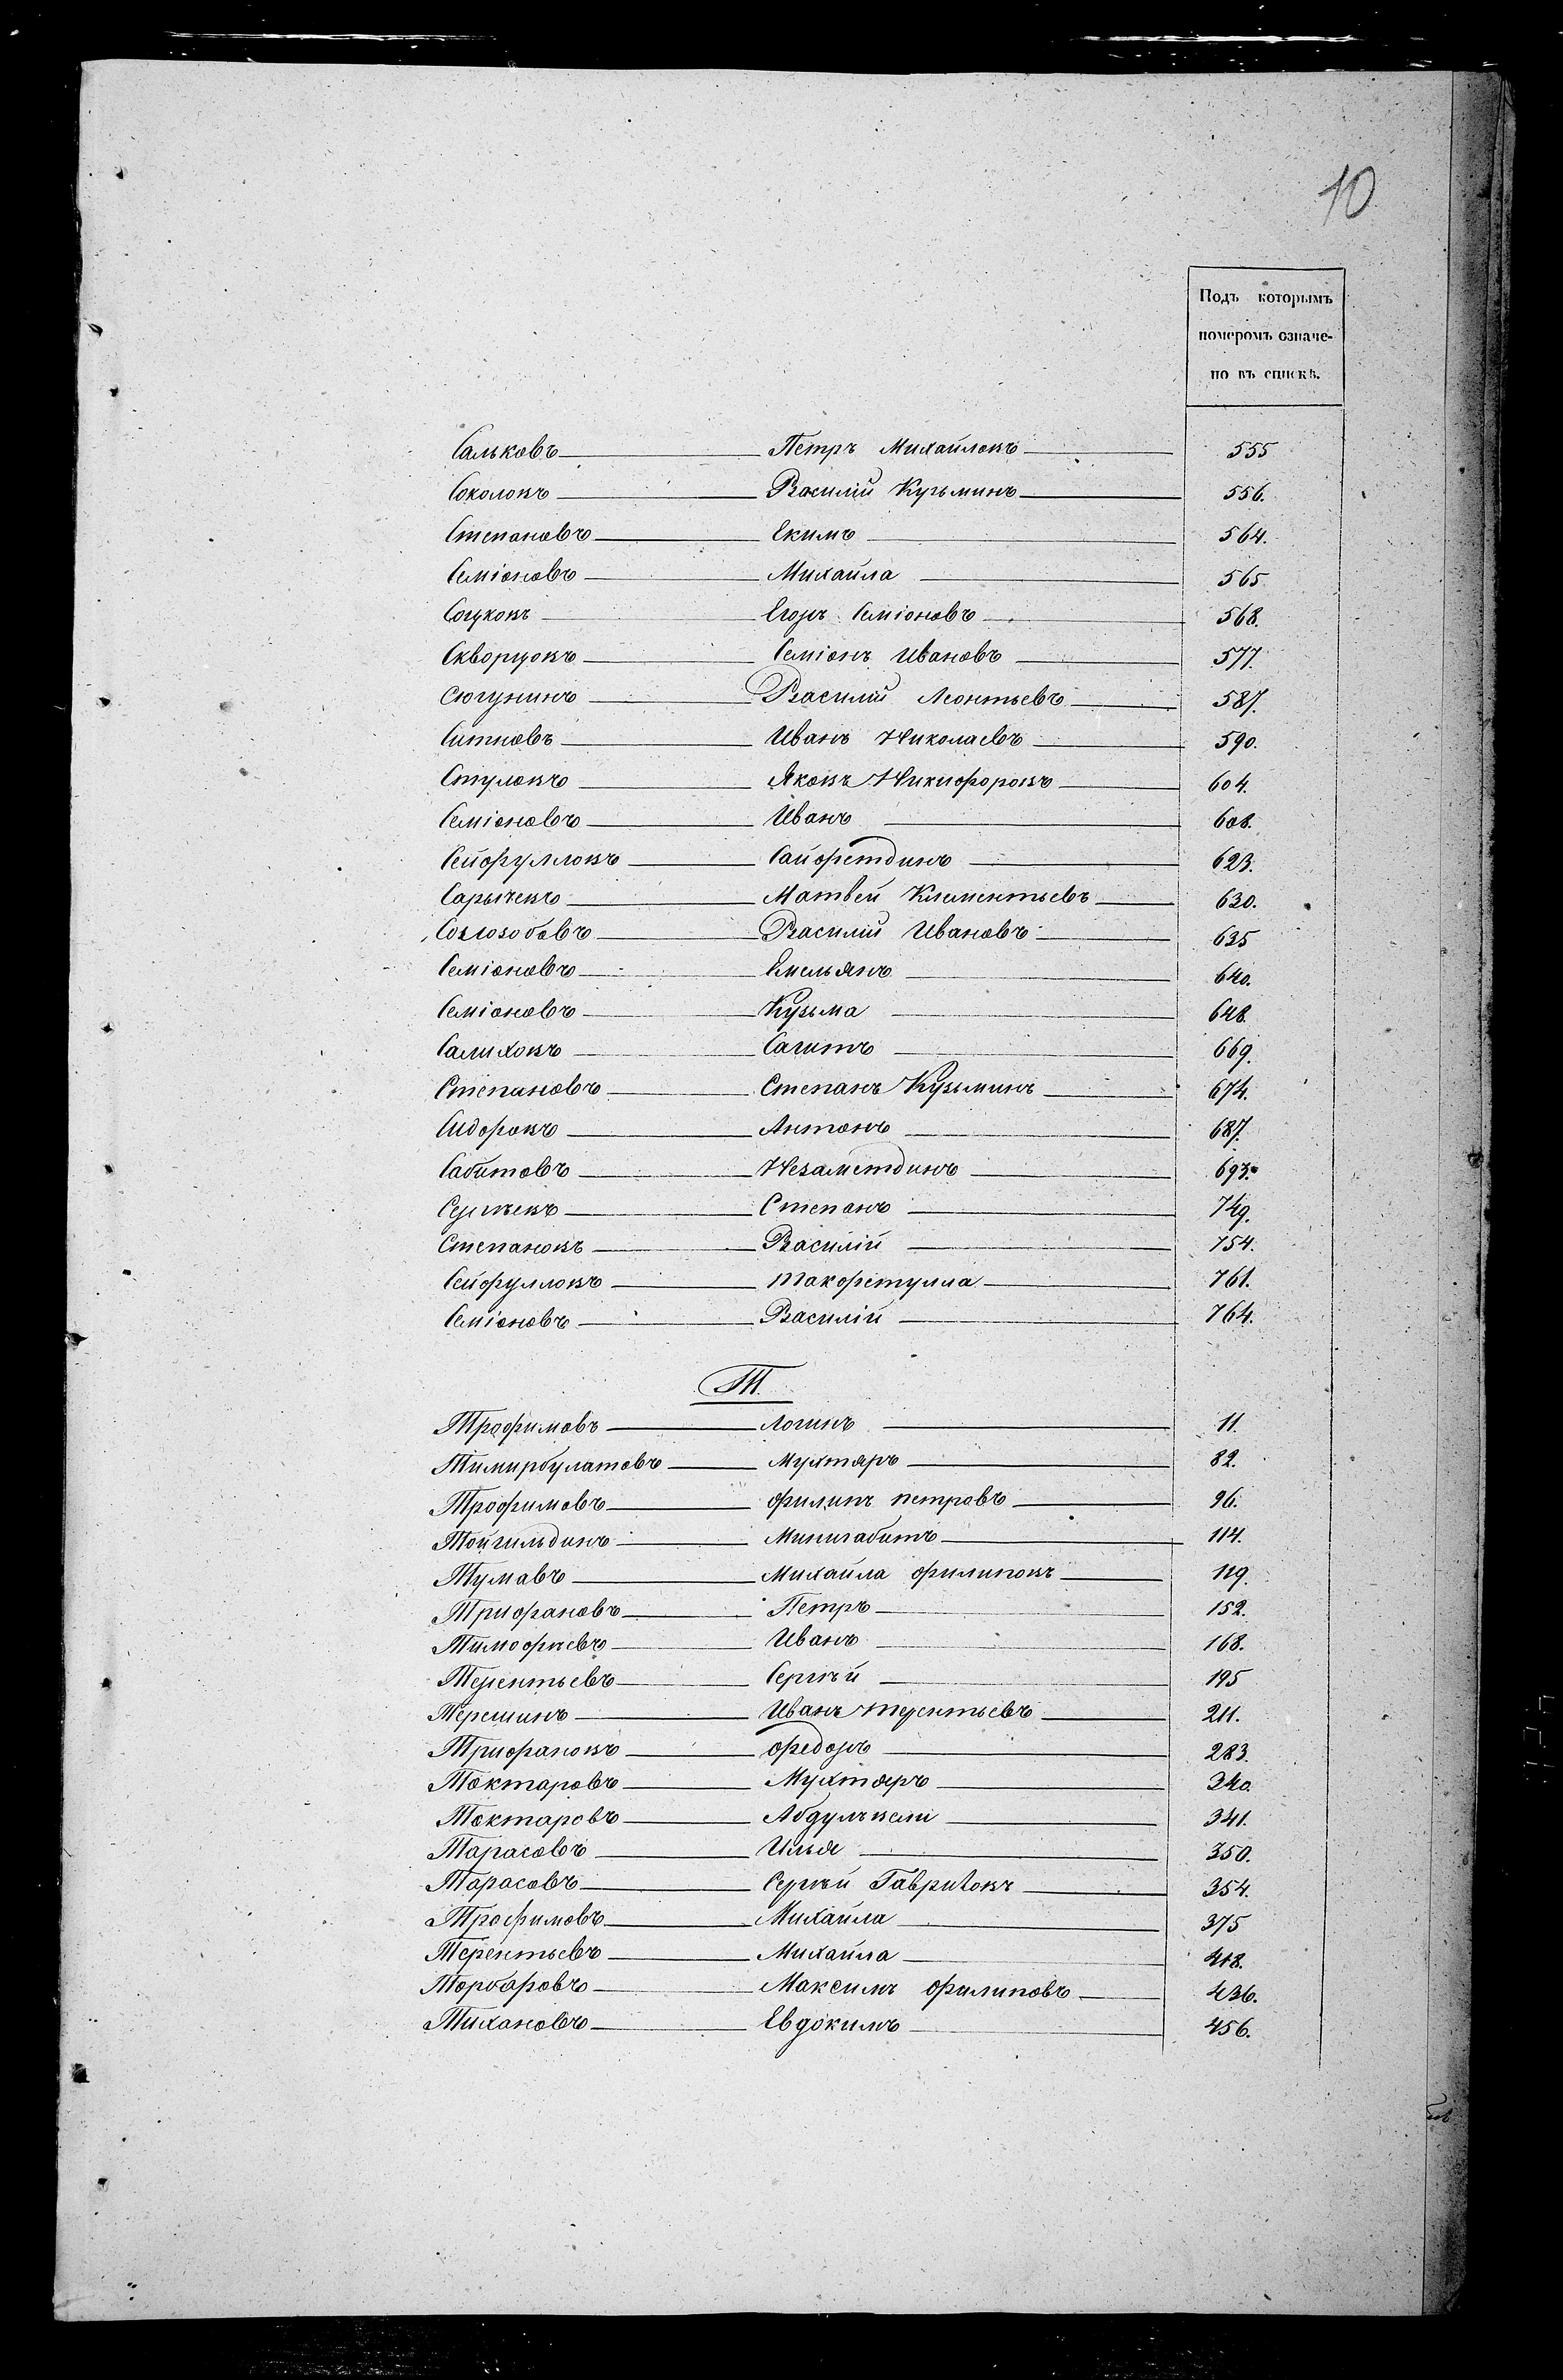 10
Подъ которымъ
номеромъ означе-
но въ спискѣ.
Сальковъ Петръ Михайловъ 555
Соколовъ Василій Кузьминъ 556.
Степановъ Екимъ 564.
Семіоновъ Михайла 565
Егоръ Семіоновъ 568.
Скворцовъ Семіонъ Ивановъ 577.
Сюгунинъ Василій Леонтьевъ 587.
Ситновъ Иванъ Николаевъ 590.
Стуловъ Яковъ Никифоровъ 604.
Семіоновъ Иванъ 608.
Сейфулловъ Сайфетдинъ 623.
Сарычевъ Матвей Клементьевъ 630.
Василій Ивановъ 635
Семіоновъ Емельянъ 640.
Семіоновъ Кузьма 648.
Салиховъ Сагитъ 669.
Степановъ Степанъ Кузьминъ 674.
Сидоровъ Антонъ 687.
Сабитовъ Незаметдинъ 693.
Сергѣевъ Степанъ 749.
Степановъ Василій 754.
Сейфулловъ 761.
Семіоновъ Василій 764.
Т.
Трофимовъ Логинъ 11.
Тимирбулатовъ Мухтяръ 82.
Трофимовъ Филипъ Петровъ 96.
Тойгильдинъ Минигабитъ 114.
Тумавъ Михайла Филиповъ 129.
Трифановъ Петръ 152.
Тимофѣевъ Иванъ 168.
Терентьевъ Сергѣй 195
Терешинъ Иванъ Терентьевъ 211.
Трифановъ Федоръ 283.
Токтаровъ Мухтяръ 340.
Токтаровъ 341.
Тарасовъ Илья 350.
Тарасовъ Сергѣй Гавриловъ 354.
Трофимовъ Михайла 375
Терентьевъ Михайла 418.
Максимъ Филиповъ 436.
Тихановъ Евдокимъ 456.